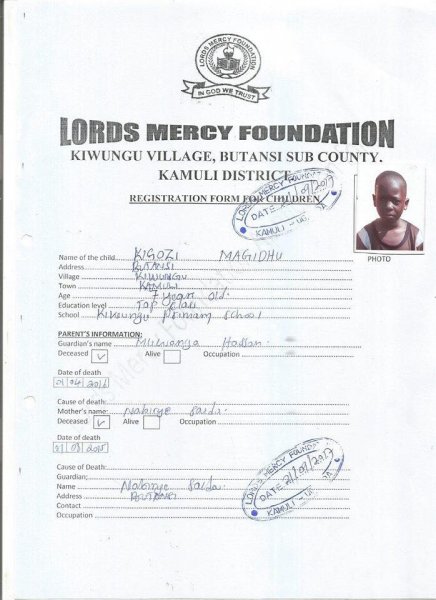 LORDS MERCY FOUNDATION
IN GOD WE TRUST
LORDS MERCY FOUNDATION
KIWUNGU VILLAGE, BUTANSI SUB COUNTY.
KAMULI DISTRICT.
REGISTRATION FORM FOR CHILDREN
LORDS MERCY FOUNDATION
DATE 21/01/2017
KAMULI - UGANDA
PHOTO
Name of the child KIGOZI MAGIDHU
Address BUTANSI
Village KIWUNGU
Town KAMULI
Age 7 years old
Education level Top class
School Kiwungu Primary School
PARENT'S INFORMATION:
Guardian's name Hassan
Deceased ✓ Alive Occupation
Date of death
01/04/2016
Cause of death:
Mother's name: Nabirye Saida
Deceased ✓ Alive Occupation
Date of death
2015
Cause of Death:
Guardian;
Name Nabirye Saida
Address BUTANSI
Contact
Occupation
LORDS MERCY FOUNDATION
DATE 21/01/2017
KAMULI - UGANDA